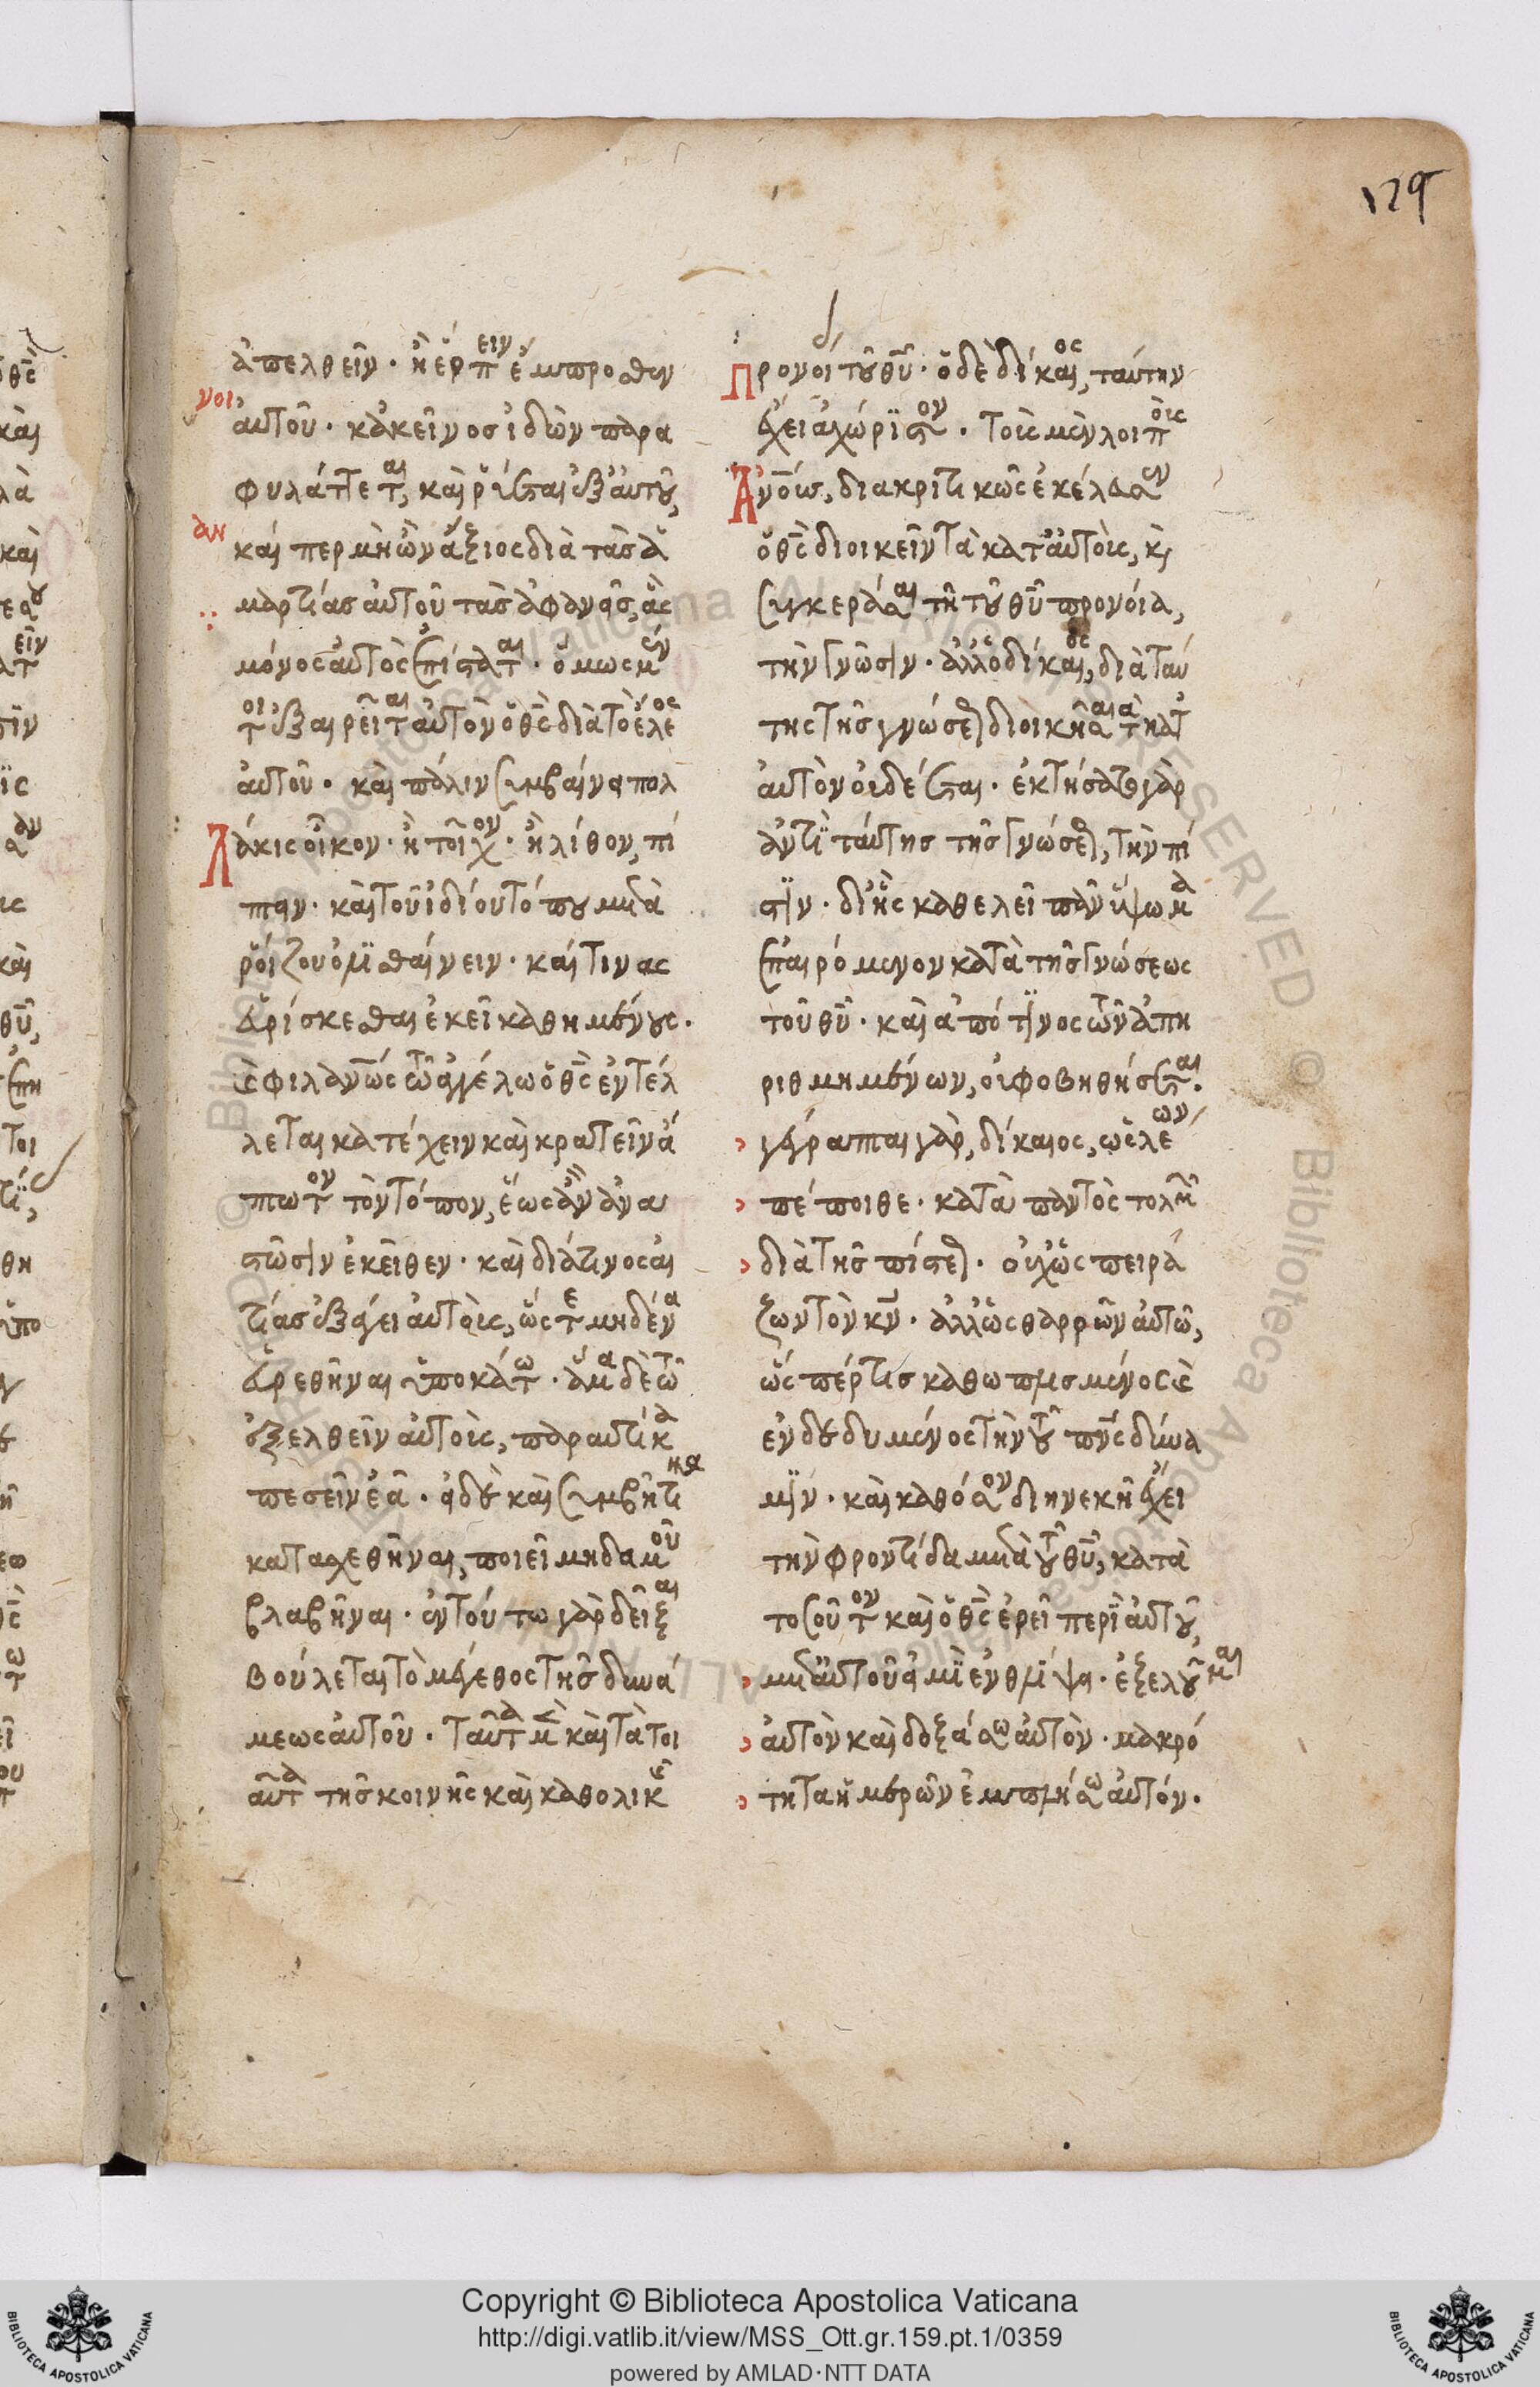 129
ἀπελθεῖν · ἢ ἕρπειν ἔμπροσθεν
αὐτοῦ · κἀκεῖνος ἰδὼν παρα
φυλάττεται, καὶ ῥύεται ἐξ αὐτοῦ,
καίπερ μὴ ὢν ἄξιος διὰ τὰς ἁ
μαρτίας αὐτοῦ τὰς ἀφανεῖς, ἃς
μόνος αὐτὸς ἐπίσταται · ὅμως μέν
τοι ἐξαιρεῖται αὐτὸν ὁ θς διὰ τὸ ἔλεος
αὐτοῦ · καὶ πάλιν συμβαίνει πολ
λάκις οἶκον · ἢ τοῖχον · ἢ λίθον, πί
πτειν · καὶ τοῦ ἰδίου τόπου μετὰ
ῥοίζου ὀλισθαίνειν · καί τινας
εὑρίσκεσθαι ἐκεῖ καθημένους ·
ὁ φιλανος τῶ ἀγγέλω ὁ θς ἐντέλ
λεται κατέχειν καὶ κρατεῖν ἄ
πτωτον τὸν τόπον, ἕως ἂν ἀνα
στῶσιν ἐκεῖθεν · καὶ διά τινος αἰ
τίας ἐξάγει αὐτοὺς, ὥστε μηδένα
εὑρεθῆναι ὑποκάτω · ἅμα δὲ τῶ
ἐξελθεῖν αὐτοὺς, παραυτίκα
πεσεῖν ἐᾶ · εἰ δὲ καὶ συμβῆ τινα
κατασχεθῆναι, ποιεῖ μηδαμοῦ
βλαβῆναι · ἐν τούτω γὰρ δεῖξαι
βούλεται τὸ μέγεθος τῆς δυνά
μεως αὐτοῦ · Ταῦτα μὲν καὶ τὰ τοι
αῦτα τῆς κοινῆς καὶ καθολικῆς
Προνοί τοῦ θυ · ὁ δὲ δίκαιος, ταύτην
ἔχει ἀχώριστον · Τοῖς μὲν λοιποῖς
Ἀνοις, διακριτικῶς ἐκέλευσεν
ὁ θς διοικεῖν τὰ κατ αὐτοὺς, κ
συγκεράσαι τῆ τοῦ θυ προνοία,
τὴν γνῶσιν · ἀλλ ὁ δίκαιος, διὰ ταύ
της τῆς γνώσεως διοικῆσαι τὰ κατ
αὐτὸν οὐ δέεται · ἐκτήσατο γὰρ
ἀντὶ ταύτης τῆς γνώσεως, τὴν πί
στιν · δι ἧς καθελεῖ πᾶν ὕψωμα
ἐπαιρόμενον κατὰ τῆς γνώσεως
τοῦ θυ · καὶ ἀπό τινος ὧν ἀπη
ριθμημένων, οὐ φοβηθήσεται ·
γέγραπται γὰρ, δίκαιος, ὡς λέων
πέποιθε · κατὰ παντὸς τολμᾶ
διὰ τῆς πίστεως · οὐχ ὡς πειρά
ζων τὸν κν · ἀλλ ὡς θαρρῶν αὐτῶ,
ὥσπέρ τις καθωπλισμένος ὁ
ἐνδεδυμένος τὴν τοῦ πνς δύνα
μιν · καὶ καθόσον διηνεκῆ ἔχει
τὴν φροντίδα μετὰ τοῦ θυ, κατὰ
τοσοῦτον καὶ ὁ θς ἐρεῖ περὶ αὐτοῦ,
μετ αὐτοῦ εἰμι ἐν θλίψει · ἐξελοῦμαι
αὐτὸν καὶ δοξάσω αὐτὸν · μακρό
τητα ἡμερῶν ἐμπλήσω αὐτόν ·
Copyright © Biblioteca Apostolica Vaticana
http://digi.vatlib.it/view/MSS_Ott.gr.159.pt.1/0359
powered by AMLAD·NTT DATA